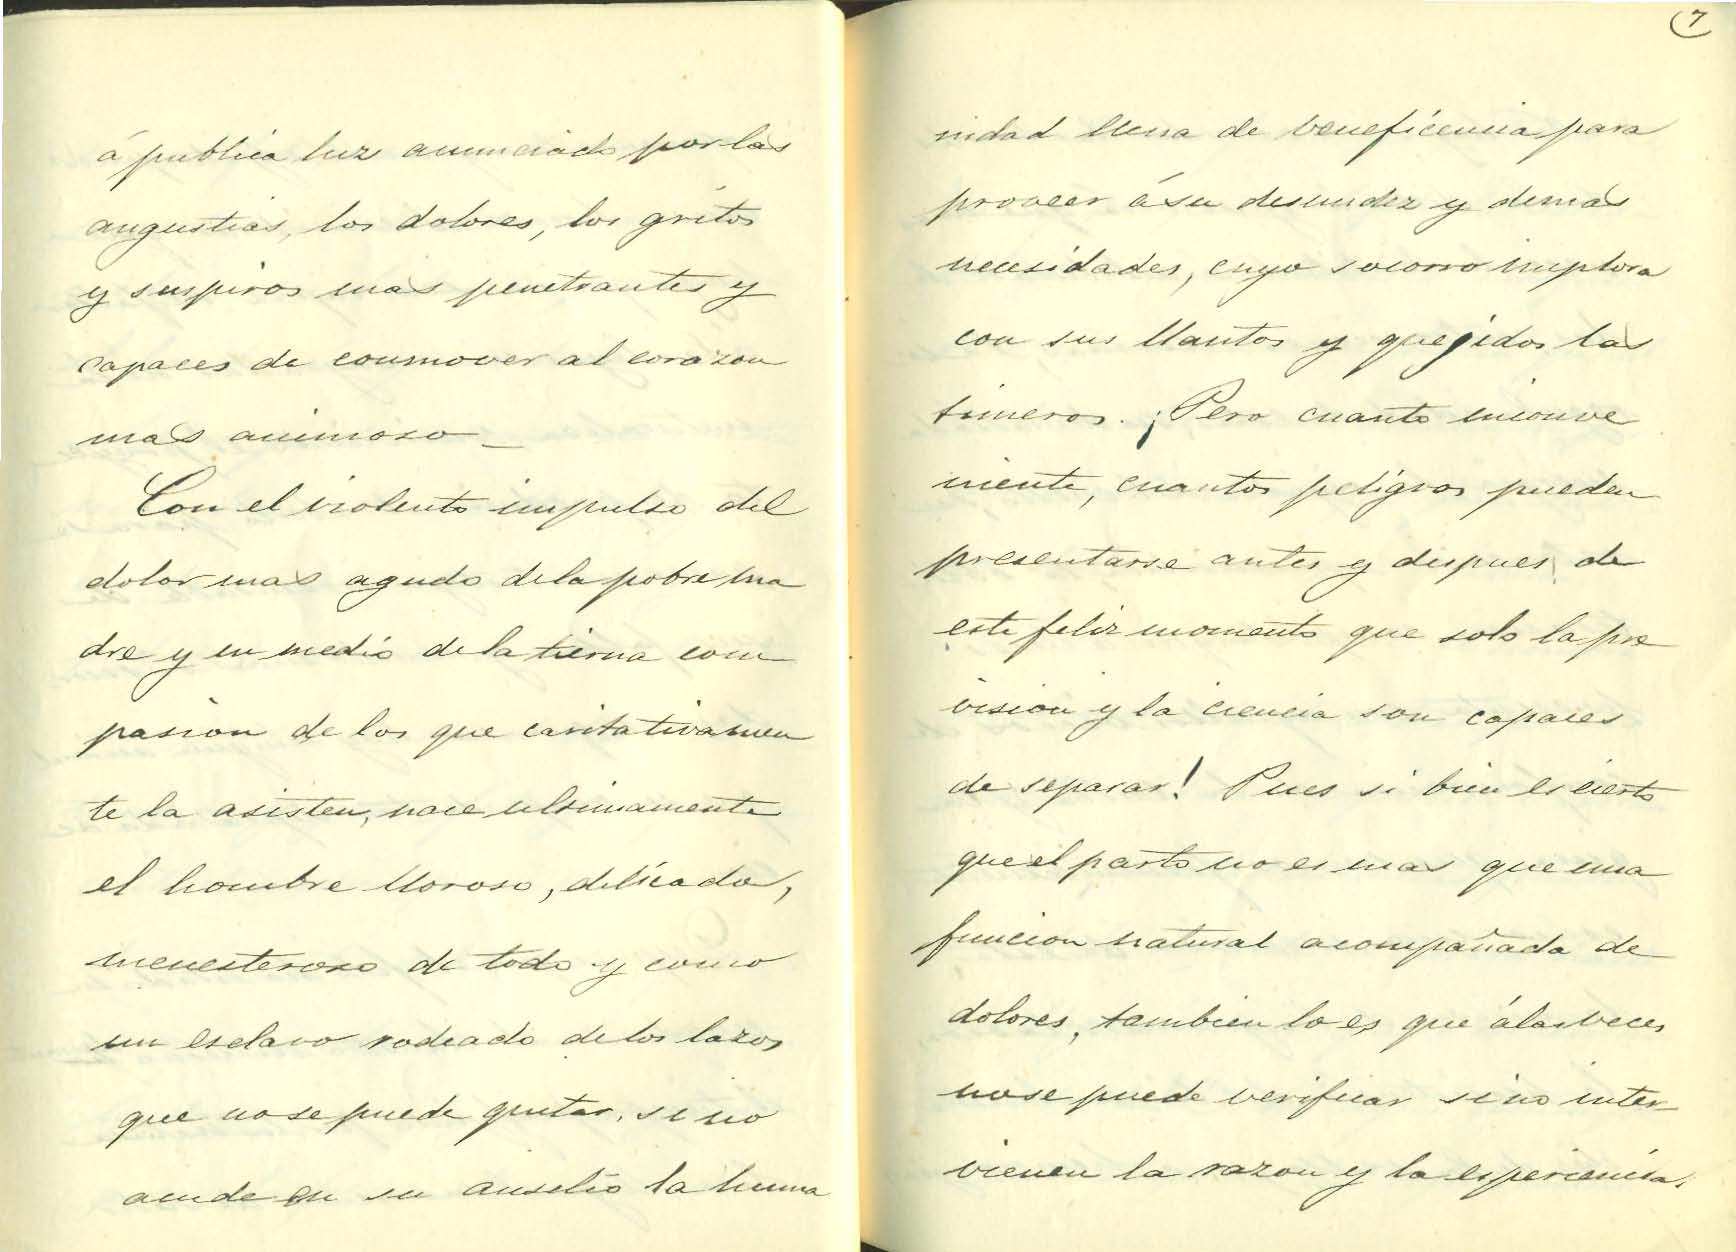 á publica luz anunciado por las
angustias, los dolores, los gritos
y suspiros mas penetrantes y
capaces de conmover al corazon
mas animoso_
Con el violento impulso del
dolor mas agudo de la pobre ma
dre y en medio de la tierna com
pasion de los que caritativamen
te la asisten, nace ultimamente
el hombre lloroso, delicado,
menesteroso de todo y como
un esclavo rodeado de los lazos
que no se puede quitar, si no
acude en su auselio la huma
7
nidad llena de beneficencia para
proveer á su desnudez y demas
necesidades, cuyo socorro implora
con sus llantos y quejidos las
timeros. ¡Pero cuanto inconve
niente, cuantos peligros pueden
presentarse antes y despues de
este feliz momento que solo la pre
vision y la ciencia son capaces
de separar! Pues si bien es cierto
que el parto no es mas que una
funcion natural acompañada de
dolores, tambien lo es que á las veces
no se puede verificar si no inter
vienen la razon y la esperiencia.